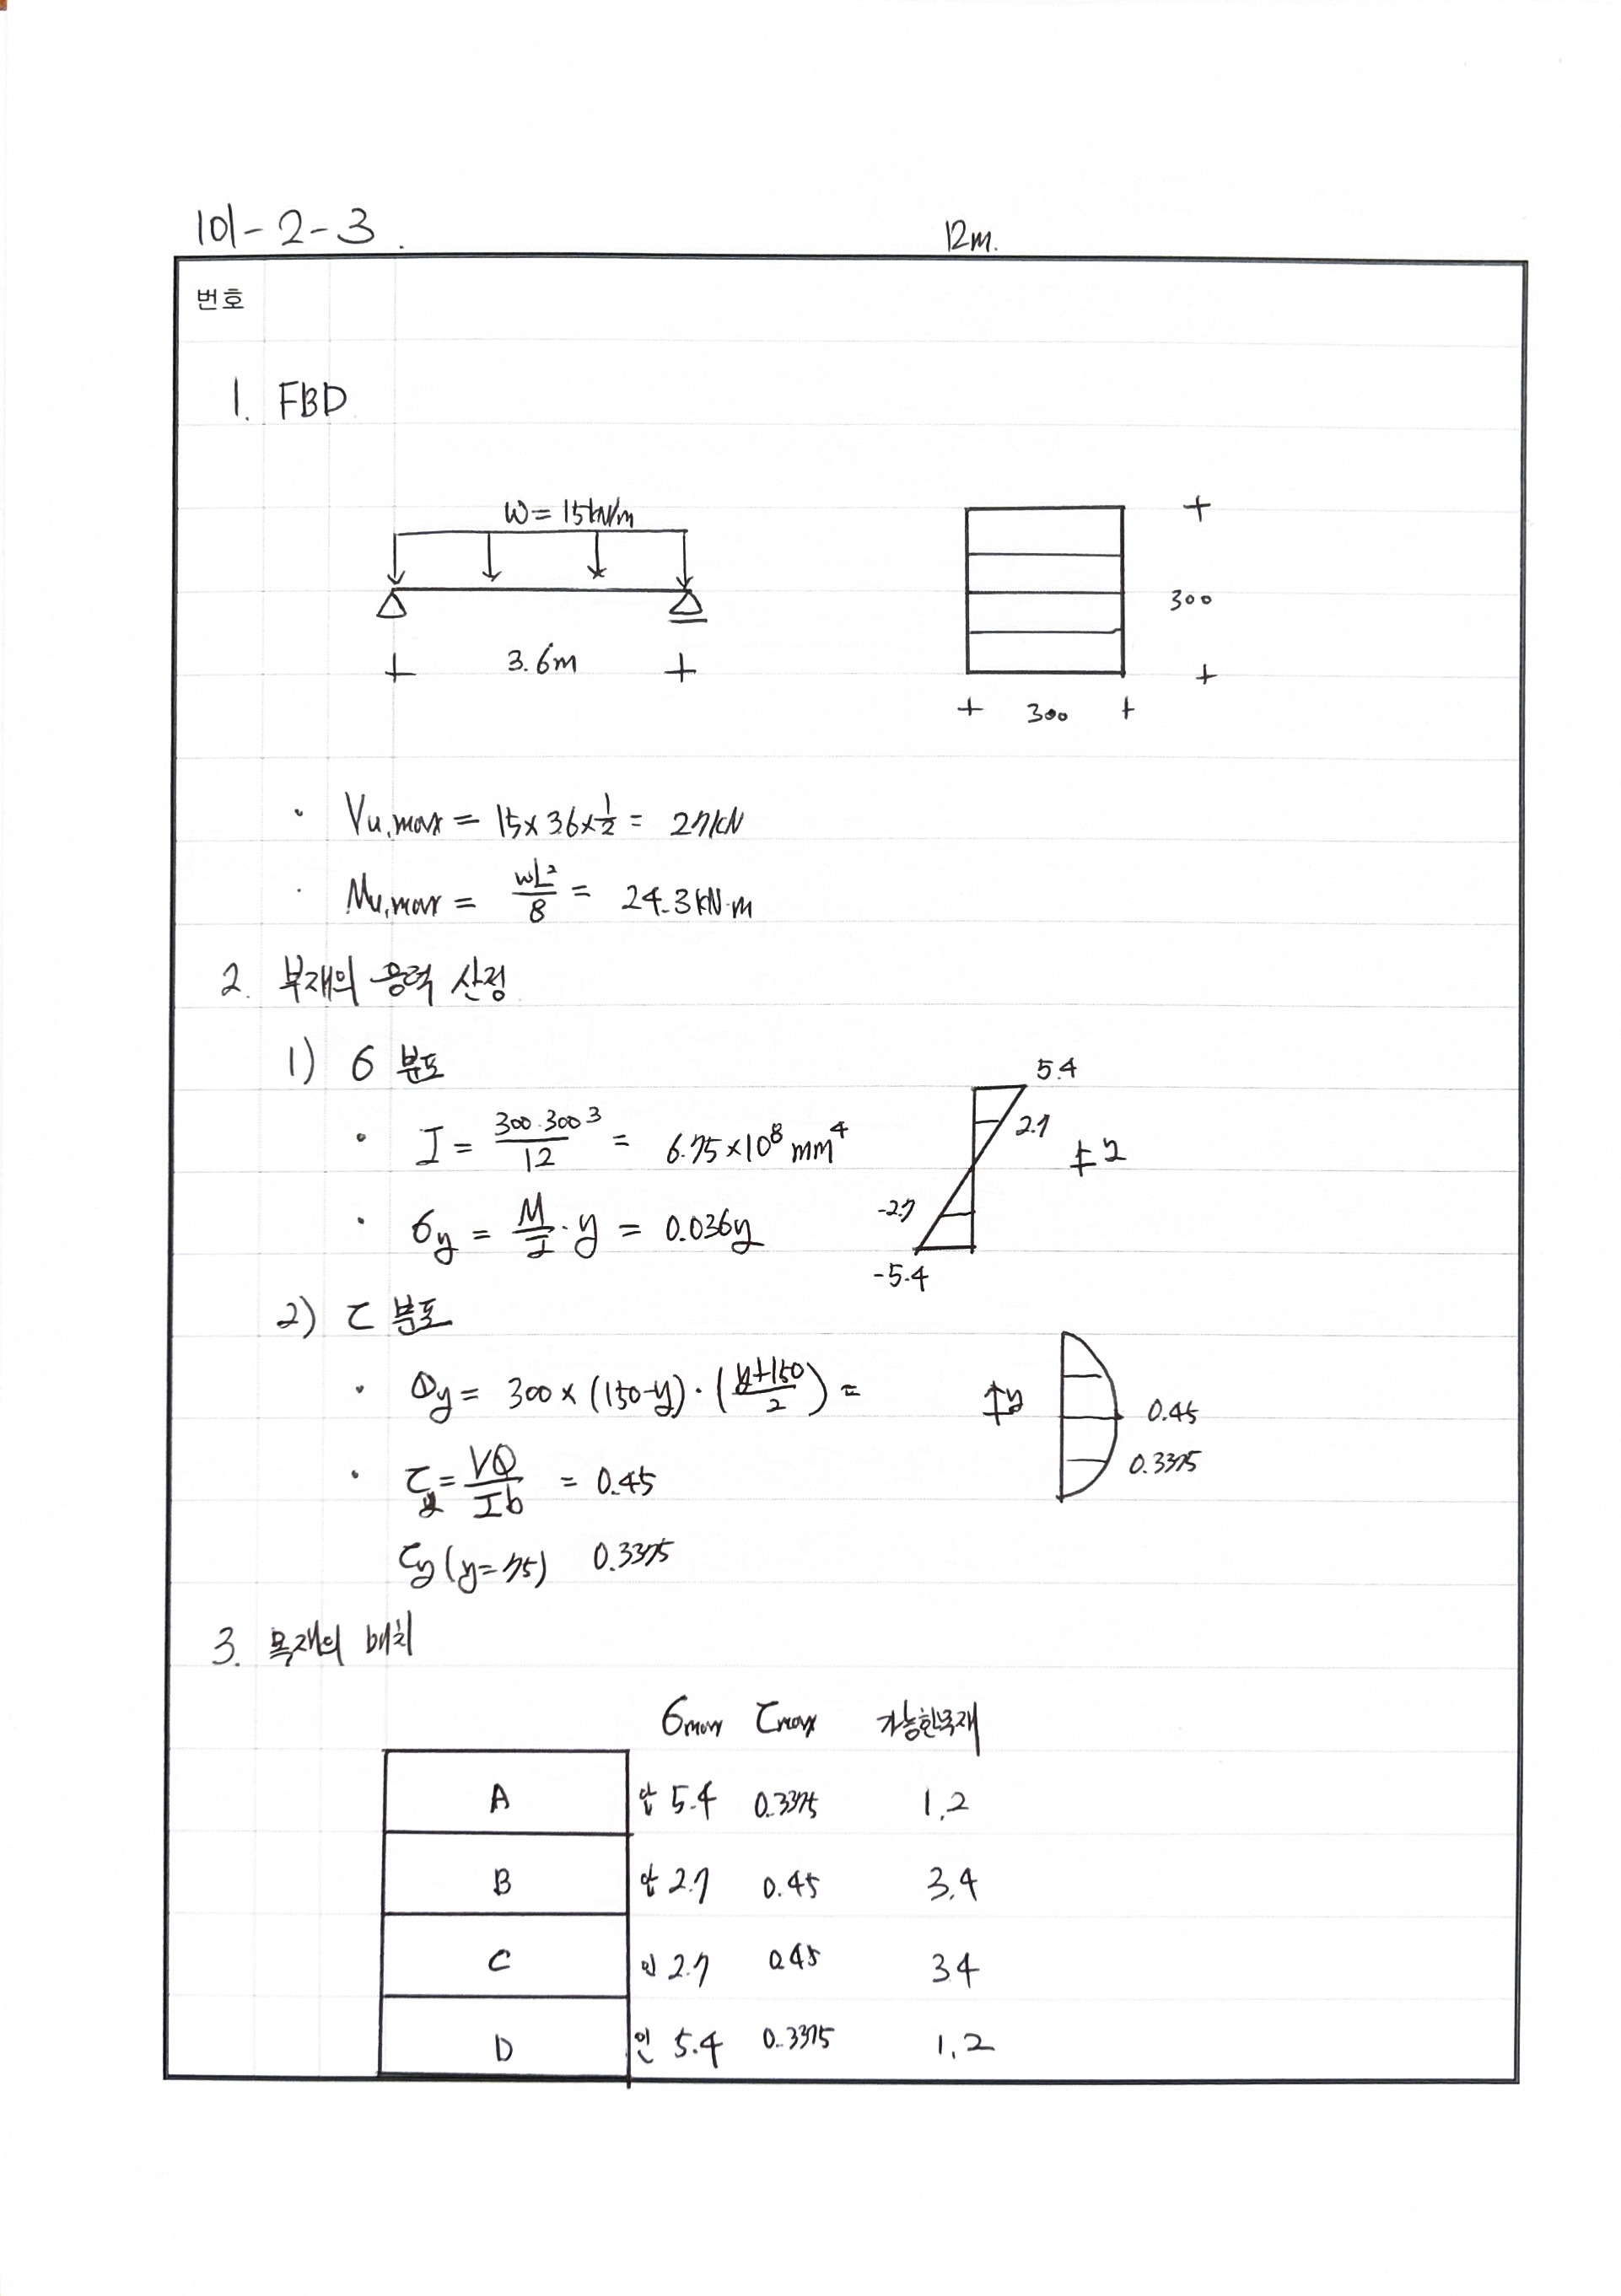 101-2-3.
12m.
번호
1. FBD
w = 15kN/m
3.6m
300
300
· Vu,max = 15 x 36 x 1/2 = 27kN
· Mu,max = wL²/8 = 24.3kN·m
2. 부재의 응력 산정
1) σ 분포
· I = 300·300³/12 = 6.75x10⁸ mm⁴
· σy = M/I · y = 0.036y
5.4
2.7
y
-2.7
-5.4
2) τ 분포
· Qy = 300 x (150-y) · (y+150/2) =
· τy = VQ/Ib = 0.45
τy (y=75) 0.3375
y
0.45
0.3375
3. 목재의 배치
σmax τmax 가능한목재
A 압 5.4 0.3375 1,2
B 압 2.7 0.45 3,4
C 인 2.7 0.45 3 4
D 인 5.4 0.3375 1,2